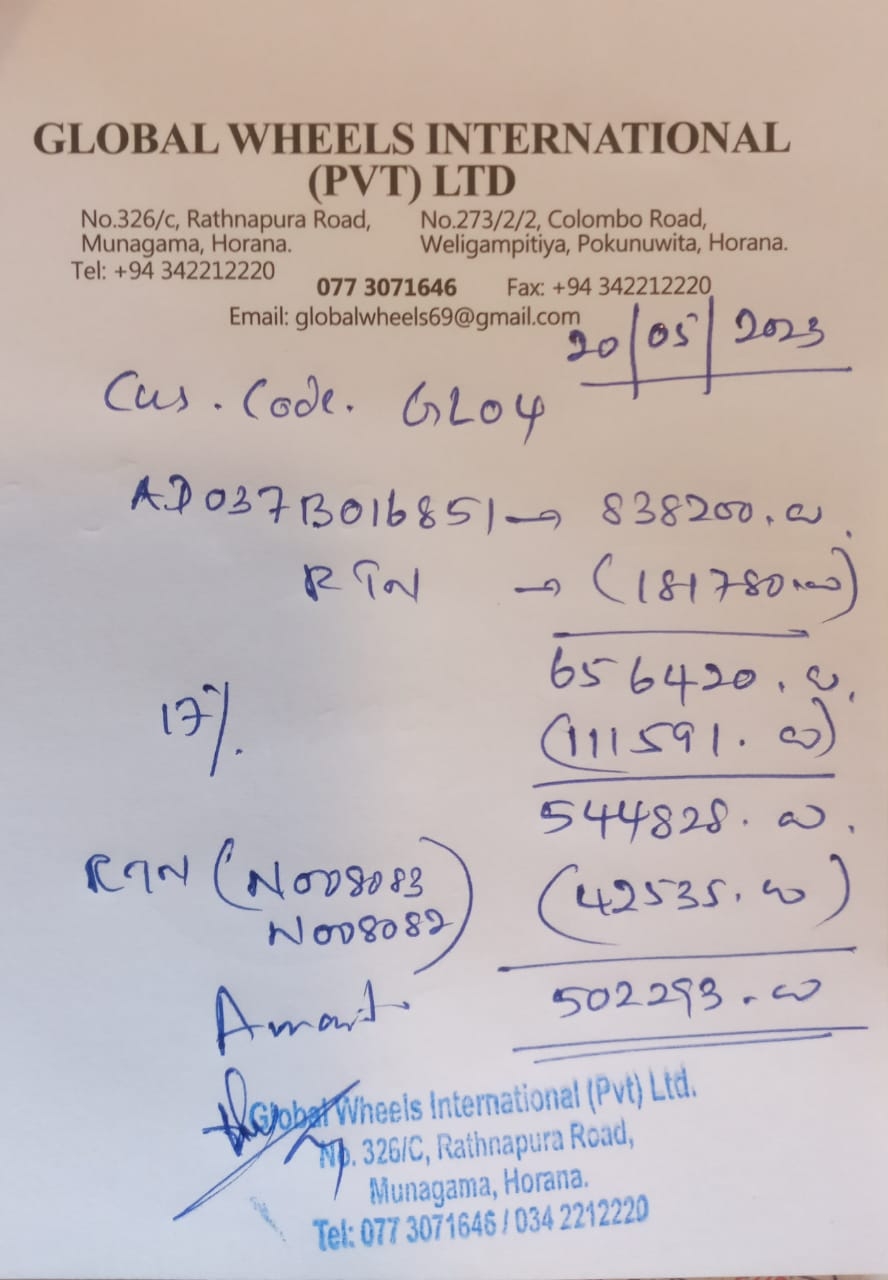 GLOBAL WHEELS INTERNATIONAL
(PVT) LTD
No.326/c, Rathnapura Road,
Munagama, Horana.
Tel: +94 342212220
No.273/2/2, Colombo Road,
Weligampitiya, Pokunuwita, Horana.
077 3071646 Fax: +94 342212220
Email: globalwheels69@gmail.com
20/05/2023
Cus. Code. GL04
AD037B016851 → 838200.00
RTN → (181780.00)
656420.00
17% (111591.00)
544828.00
RTN (N008083 (42535.00)
N008082)
Amount 502293.00
Global Wheels International (Pvt) Ltd.
No. 326/C, Rathnapura Road,
Munagama, Horana.
Tel: 077 3071646 / 034 2212220